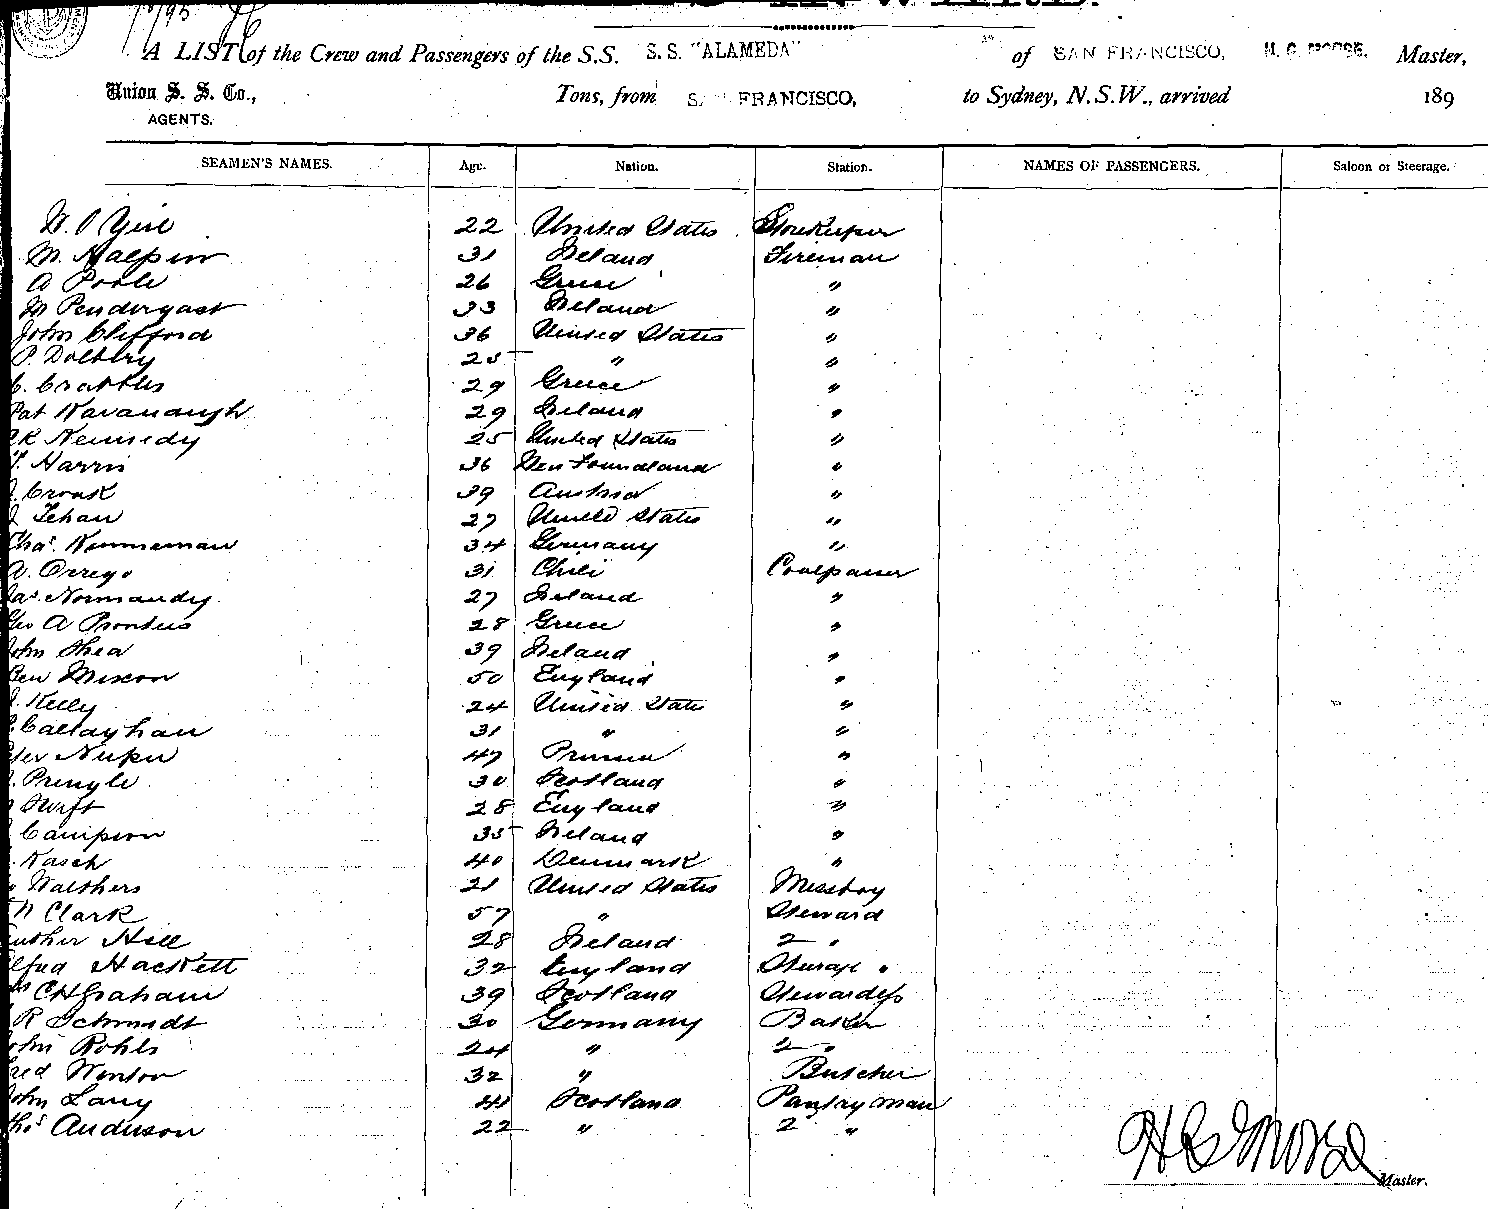 A LIST of the Crew and Passengers of the S.S. S.S. "ALAMEDA" of SAN FRANCISCO, H. C. MORSE. Master,
Union S. S. Co., Tons, from SAN FRANCISCO, to Sydney, N.S.W., arrived 189
AGENTS.
SEAMEN'S NAMES. Age. Nation. Station. NAMES OF PASSENGERS. Saloon or Steerage.
22 United States Storekeeper
M. Halpin 31 Ireland Fireman
A Poole 26 Greece "
M Pendergast 33 Ireland "
John Clifford 36 United States "
P. Dolbery 25 " "
C. Crattles 29 Greece "
Pat Kavanaugh 29 Ireland "
Kennedy 25 United States "
T. Harris 36 Newfoundland "
J. Cronk 39 Austria "
J Tehan 27 United States "
Chas. Kenneman 34 Germany "
A. Orrego 31 Chili Coalpasser
Jas. Normandy 27 Ireland "
Geo A 28 Greece "
John Shea 39 Ireland "
Ben Mixon 50 England "
J. Kelly 24 United States "
Callaghan 31 " "
47 Prussia "
Pringle 30 Scotland "
Swift 28 England "
Campion 35 Ireland "
Kasch 40 Denmark "
Walthers 21 United States Messboy
Clark 57 " Steward
Luther Hill 28 Ireland 2 "
Alfred Hackett 32 England Steerage "
Mrs C H Graham 39 Scotland Stewardess
R Schmidt 30 Germany Baker
John Rohls 24 " 2 "
Fred Winton 32 " Butcher
John Lang 41 Scotland Pantryman
Thos Anderson 22 " 2 "
H C Morse
Master.